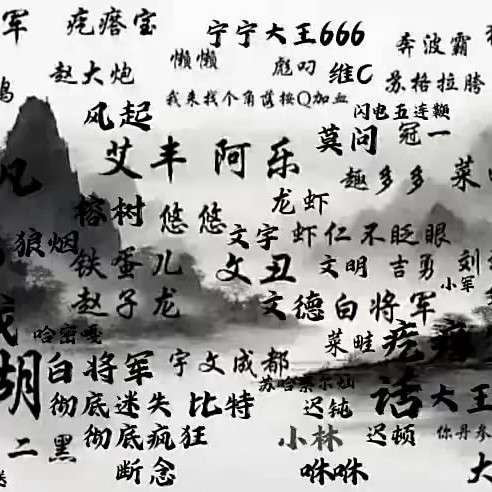 军 疙瘩宝 宁宁大王666
奔波霸
懒懒 彪叼 维C
赵大炮 苏格拉胯
我来找个角落按Q加血
风起 闪电五连鞭
莫问 冠一
艾丰 阿乐
凡 趣多多 菜
龙虾
榕树 悠悠
狼烟 文字 虾仁不眨眼
铁蛋儿 文丑 文明 吉勇 刘
小军
赵子龙 文德白将军
哈密嘎 菜畦 疙瘩
胡 白将军 宇文成都
苏哈索尔灿
彻底迷失 比特 迟钝 话 大王
彻底疯狂 小林 迟顿 你丹参
二黑
断念 咻咻 大